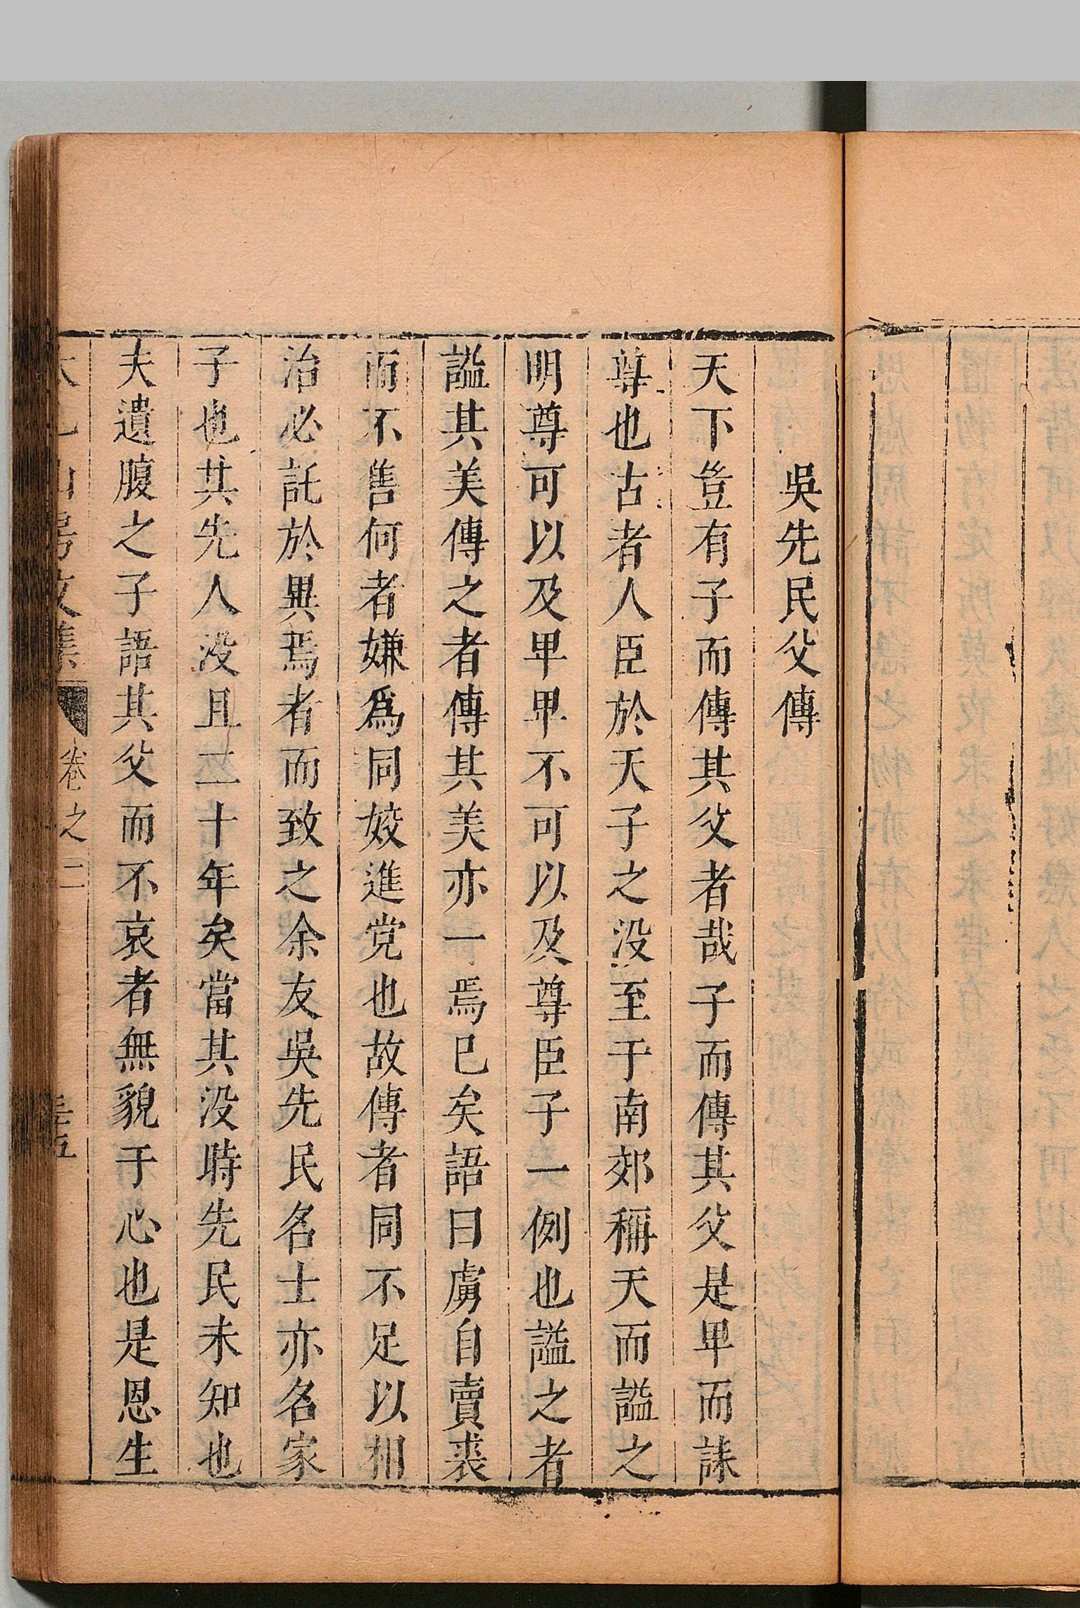 吳先民父傳
天下豈有子而傳其父者哉子而傳其父是𤰞而誄
尊也古者人臣於天子之没至于南郊稱天而謚之
明尊可以及𤰞𤰞不可以及尊臣子一例也謚之者
謚其美傳之者傳其美亦一焉已矣語曰虜自賣裘
而不售何者嫌爲同姣進党也故傳者同不足以相
治必託於異焉者而致之余友吳先民名士亦名家
子也其先人没且二十年矣當其没時先民未知也
夫遺腹之子語其父而不哀者無貌于心也是恩生
山房文集
卷之二
三五